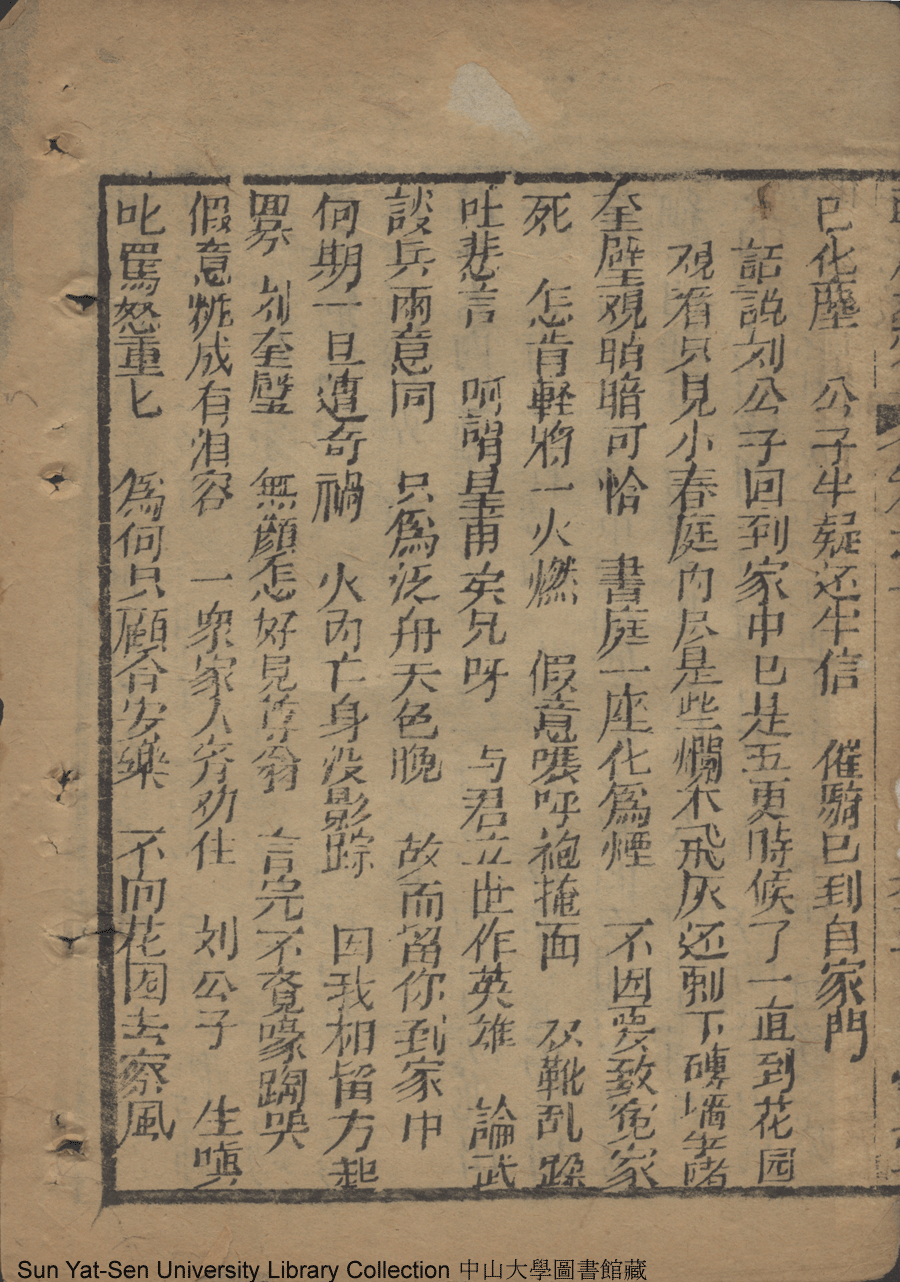 已化塵　公子半疑还半信　催騎已到自家門
話說刘公子回到家中已是五更時候了一直到花园
观看只見小春庭内尽是些爛木飛灰还剩下磚墻
奎壁观
暗可恰　書庭一座化為煙　不因要致冤家
死　怎肯軽將一火燃　假意嗟呼袍掩面　双靴乱跺
吐悲言　呵謂皇甫矣兄呀　与君立世作英雄　論武
談兵兩意同　只為泛舟天色晚　故而留你到家中
何期一旦遭奇禍　火内亡身没影踪　因我相留方起
畧　刘奎璧　無顔怎好見尊翁　言完不覚嚎啕哭
假意粧成有泪容　一衆家人齐劝住　刘公子　生嗔
叱罵怒重匕　為何只顧合安樂　不向花园去察風
Sun Yat-Sen University Library Collection 中山大學圖書館藏